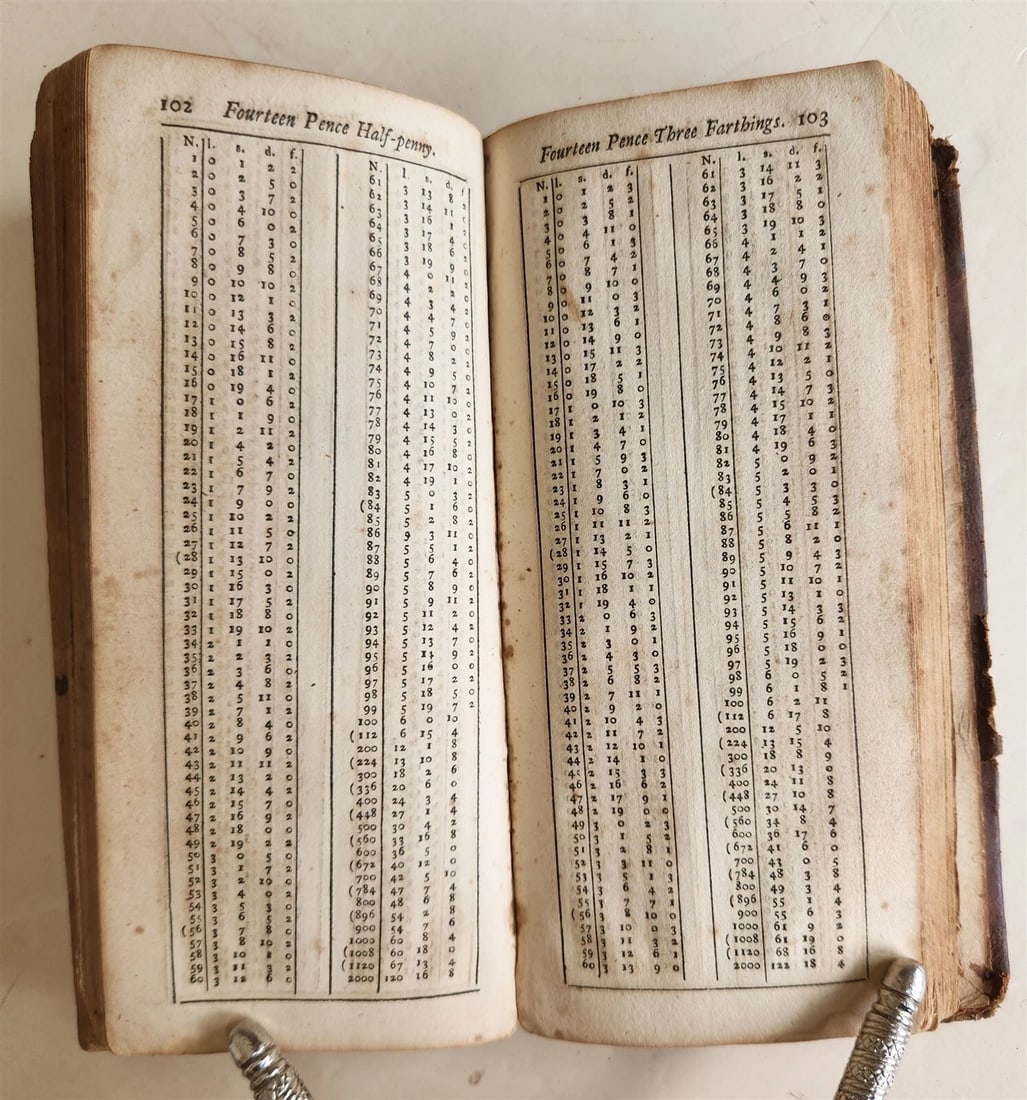 102 Fourteen Pence Half-penny.
N. l. s. d. f.
1 0 1 2 2
2 0 2 5 0
3 0 3 7 2
4 0 4 10 0
5 0 6 0 2
6 0 7 3 0
7 0 8 5 2
8 0 9 8 0
9 0 10 10 2
10 0 12 1 0
11 0 13 3 2
12 0 14 6 0
13 0 15 8 2
14 0 16 11 0
15 0 18 1 2
16 0 19 4 0
17 1 0 6 2
18 1 1 9 0
19 1 2 11 2
20 1 4 2 0
21 1 5 4 2
22 1 6 7 0
23 1 7 9 2
24 1 9 0 0
25 1 10 2 2
26 1 11 5 0
27 1 12 7 2
(28 1 13 10 0
29 1 15 0 2
30 1 16 3 0
31 1 17 5 2
32 1 18 8 0
33 1 19 10 2
34 2 1 1 0
35 2 2 3 2
36 2 3 6 0
37 2 4 8 2
38 2 5 11 0
39 2 7 1 2
40 2 8 4 0
41 2 9 6 2
42 2 10 9 0
43 2 11 11 2
44 2 13 2 0
45 2 14 4 2
46 2 15 7 0
47 2 16 9 2
48 2 18 0 0
49 2 19 2 2
50 3 0 5 0
51 3 1 7 2
52 3 2 10 0
53 3 4 0 2
54 3 5 3 0
55 3 6 5 2
(56 3 7 8 0
57 3 8 10 2
58 3 10 1 0
59 3 11 3 2
60 3 12 6 0
N. l. s. d. f
61 3 13 8 2
62 3 14 11 0
63 3 16 1 2
64 3 17 4 0
65 3 18 6 2
66 3 19 9 0
67 4 0 11 2
68 4 2 2 0
69 4 3 4 2
70 4 4 7 0
71 4 5 9 2
72 4 7 0 0
73 4 8 2 2
74 4 9 5 0
75 4 10 7 2
76 4 11 10 0
77 4 13 0 2
78 4 14 3 0
79 4 15 5 2
80 4 16 8 0
81 4 17 10 2
82 4 19 1 0
83 5 0 3 2
(84 5 1 6 0
85 5 2 8 2
86 9 3 11 0
87 5 5 1 2
88 5 6 4 0
89 5 7 6 2
90 5 8 9 0
91 5 9 11 2
92 5 11 2 0
93 5 12 4 2
94 5 13 7 0
95 5 14 9 2
96 5 16 0 0
97 5 17 2 2
98 5 18 5 0
99 5 19 7 2
100 6 0 10
(112 6 15 4
200 12 1 8
(224 13 10 8
300 18 2 6
(336 20 6 0
400 24 3 4
(448 27 1 4
500 30 4 2
(560 33 16 8
600 36 5 0
(672 40 12 0
700 42 5 10
(784 47 7 4
800 48 6 8
(896 54 2 8
900 54 7 6
1000 60 8 4
(1008 60 18 0
(1120 67 13 4
2000 120 16 8
Fourteen Pence Three Farthings. 103
N. l. s. d. f.
1 0 1 2 3
2 0 2 5 2
3 0 3 8 1
4 0 4 11 0
5 0 6 1 3
6 0 7 4 2
7 0 8 7 1
8 0 9 10 0
9 0 11 0 3
10 0 12 3 2
11 0 13 6 1
12 0 14 9 0
13 0 15 11 3
14 0 17 2 2
15 0 18 5 1
16 0 19 8 0
17 1 0 10 3
18 1 2 1 2
19 1 3 4 1
20 1 4 7 0
21 1 5 9 3
22 1 7 0 2
23 1 8 3 1
24 1 9 6 0
25 1 10 8 3
26 1 11 11 2
27 1 13 2 1
(28 1 14 5 0
29 1 15 7 3
30 1 16 10 2
31 1 18 1 1
32 1 19 4 0
33 2 0 6 3
34 2 1 9 2
35 2 3 0 1
36 2 4 3 0
37 2 5 5 3
38 2 6 8 2
39 2 7 11 1
40 2 9 2 0
41 2 10 4 3
42 2 11 7 2
43 2 12 10 1
44 2 14 1 0
45 2 15 3 3
46 2 16 6 2
47 2 17 9 1
48 2 19 0 0
49 3 0 2 3
50 3 1 5 2
51 3 2 8 1
52 3 3 11 0
53 3 5 1 3
54 3 6 4 2
55 3 7 7 1
(56 3 8 10 0
57 3 10 0 3
58 3 11 3 2
59 3 12 6 1
60 3 13 9 0
N. l. s. d. f.
61 3 14 11 3
62 3 16 2 2
63 3 17 5 1
64 3 18 8 0
65 3 19 10 3
66 4 1 1 2
67 4 2 4 1
68 4 3 7 0
69 4 4 9 3
70 4 6 0 2
71 4 7 3 1
72 4 8 6 0
73 4 9 8 3
74 4 10 11 2
75 4 12 2 1
76 4 13 5 0
77 4 14 7 3
78 4 15 10 2
79 4 17 1 1
80 4 18 4 0
81 4 19 6 3
82 5 0 9 2
83 5 2 0 1
(84 5 3 3 0
85 5 4 5 3
86 5 5 8 2
87 5 6 11 1
88 5 8 2 0
89 5 9 4 3
90 5 10 7 2
91 5 11 10 1
92 5 13 1 0
93 5 14 3 3
94 5 15 6 2
95 5 16 9 1
96 5 18 0 0
97 5 19 2 3
98 6 0 5 2
99 6 1 8 1
100 6 2 11
(112 6 17 8
200 12 5 10
(224 13 15 4
300 18 8 9
(336 20 13 0
400 24 11 8
(448 27 10 8
500 30 14 7
(560 34 8 4
600 36 17 6
(672 41 6 0
700 43 0 5
(784 48 3 8
800 49 3 4
(896 55 1 4
900 55 6 3
1000 61 9 2
(1008 61 19 0
(1120 68 16 8
2000 122 18 4